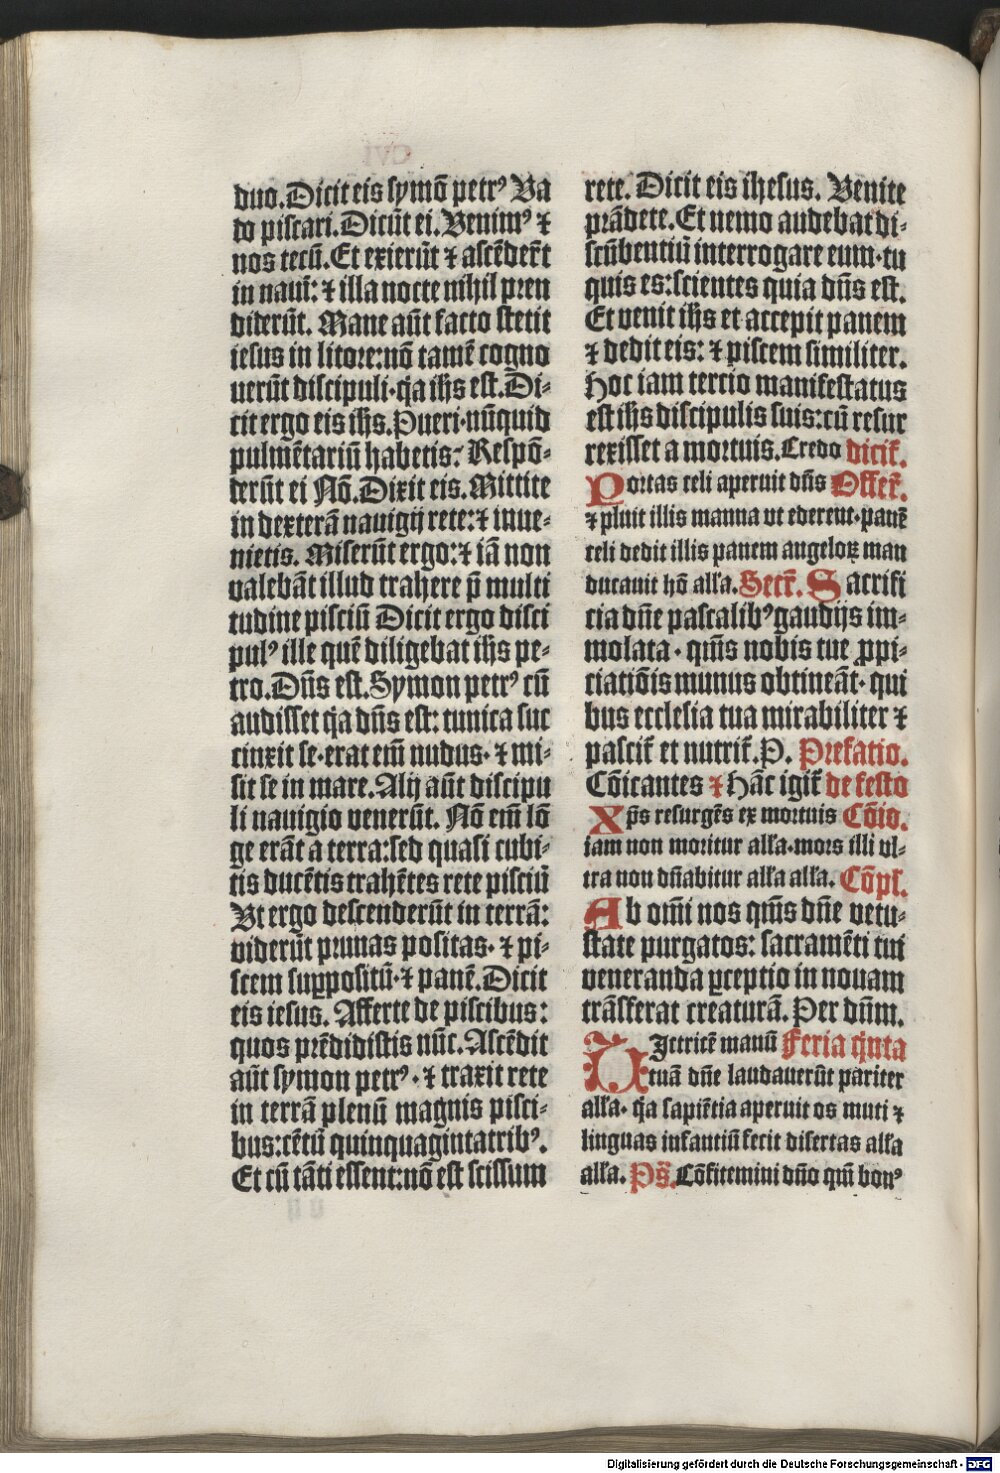 duo. Dicit eis symō petrꝰ Va
do piscari. Dicūt ei. Venimꝰ ⁊
nos tecū. Et exierūt ⁊ ascēder̄t
in nauī: ⁊ illa nocte nihil pren
diderūt. Mane aūt facto stetit
iesus in litore: nō tamē cogno
uerūt discipuli· q̄a ih̄s est. Di⸗
cit ergo eis ih̄s. Pueri· nūquid
pulmētariū habetis: Respō⸗
derūt ei Nō. Dixit eis. Mittite
in dexterā nauigij rete: ⁊ inue⸗
nietis. Miserūt ergo: ⁊ iā non
valebāt illud trahere p̄ multi
tudine pisciū Dicit ergo disci
pulꝰ ille quē diligebat ih̄s pe⸗
tro. Dn̄s est. Symon petrꝰ cū
audisset q̄a dn̄s est: tunica suc
cinxit se· erat em̄ nudus· ⁊ mi⸗
sit se in mare. Alij aūt discipu
li nauigio venerūt. Nō em̄ lō
ge erāt a terra: sed quasi cubi⸗
tis ducētis trahētes rete pisciū
Vt ergo descenderūt in terrā:
viderūt prunas positas· ⁊ pi⸗
scem suꝑpositū· ⁊ panē. Dicit
eis iesus. Afferte de piscibus:
quos prēdidistis nūc. Ascēdit
aūt symon petrꝰ· ⁊ traxit rete
in terrā plenū magnis pisci⸗
bus: cētū quinquagintatribꝰ.
Et cū tāti essent: nō est scissum
rete. Dicit eis ihesus. Venite
prādete. Et nemo audebat di⸗
scūbentiū interrogare eum· tu
quis es: scientes quia dn̄s est.
Et venit ih̄s et accepit panem
⁊ dedit eis: ⁊ piscem similiter.
Hoc iam tercio manifestatus
est ih̄s discipulis suis: cū resur
rexisset a mortuis. Credo dicit̄.
Portas celi aperuit dn̄s Offer̄.
⁊ pluit illis manna vt ederent· panē
celi dedit illis panem angeloꝝ man
ducauit hō alľa. Secr̄. Sacrifi
cia dn̄e pascalibꝰ gaudijs im⸗
molata· qm̄s nobis tue ꝓpi⸗
ciatiōis munus obtineāt· qui
bus ecclesia tua mirabiliter ⁊
pascit̄ et nutrit̄. P. Prefatio.
Cōicantes ⁊ Hāc igit̄ de festo
Xp̄s resurgēs ex mortuis Cōio.
iam non moritur alľa· mors illi vl⸗
tra non dn̄abitur alľa alľa. Cōpl.
Ab om̄i nos qm̄s dn̄e vetu⸗
state purgatos: sacramēti tui
veneranda ꝑceptio in nouam
trāsferat creaturā. Per dn̄m.
Victricē manū Feria q̄nta
tuā dn̄e laudauerūt pariter
alľa· q̄a sapiētia aperuit os muti ⁊
linguas infantiū fecit disertas alľa
alľa. Ps̄. Cōfitemini dn̄o qm̄ bonꝰ
Digitalisierung gefördert durch die Deutsche Forschungsgemeinschaft - DFG